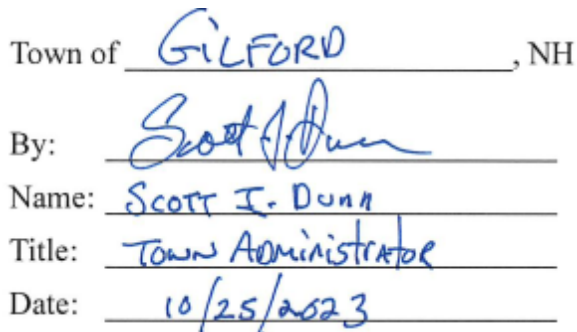 Town of GILFORD, NH
By: Scott J. Dunn
Name: SCOTT J. DUNN
Title: TOWN ADMINISTRATOR
Date: 10/25/2023